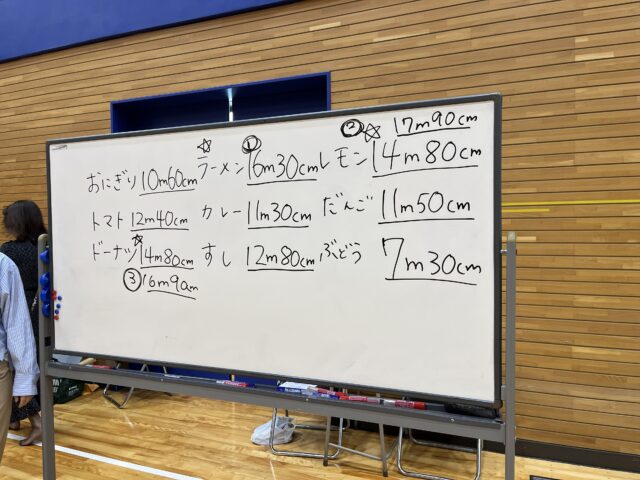 ② ☆ 17m90cm
☆ ①
おにぎり 10m60cm ラーメン 16m30cm レモン 14m80cm
トマト 12m40cm カレー 11m30cm だんご 11m50cm
☆
ドーナツ 14m80cm すし 12m80cm ぶどう 7m30cm
③ 16m90cm